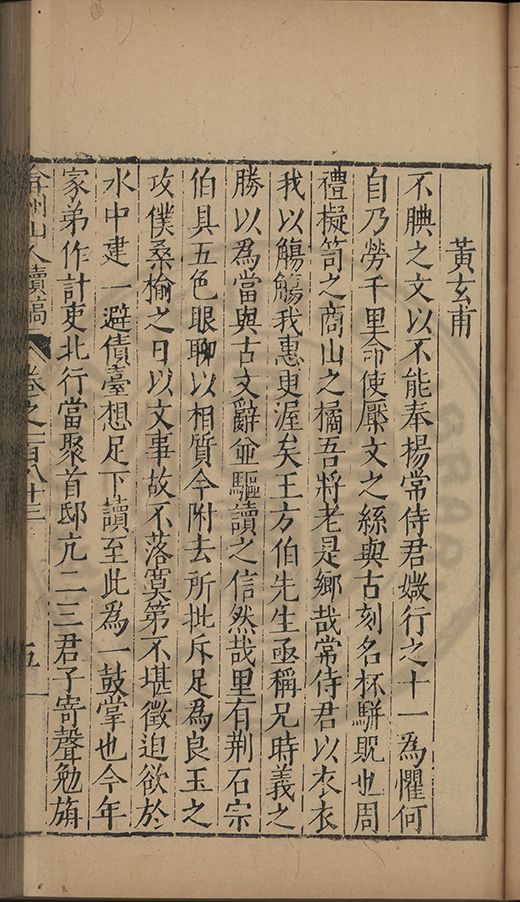 黃玄甫
不腆之文以不能奉揚常侍君媺行之十一爲懼何
自乃勞千里命使厪文之絲與古刻名杯駢貺也周
禮擬笥之商山之橘吾將老是鄉哉常侍君以衣衣
我以觴觴我惠更渥矣王方伯先生亟稱兄時義之
勝以爲當與古文辭並驅讀之信然哉里有荆石宗
伯具五色眼聊以相質今附去所批斥足爲良玉之
攻僕桑榆之日以文事故不落寞第不堪徵迫欲於
水中建一避債臺想足下讀至此爲一鼓掌也今年
家弟作計吏北行當聚首邸亢二三君子寄聲勉旃
弇州山人續稿
卷之一百八十三
五